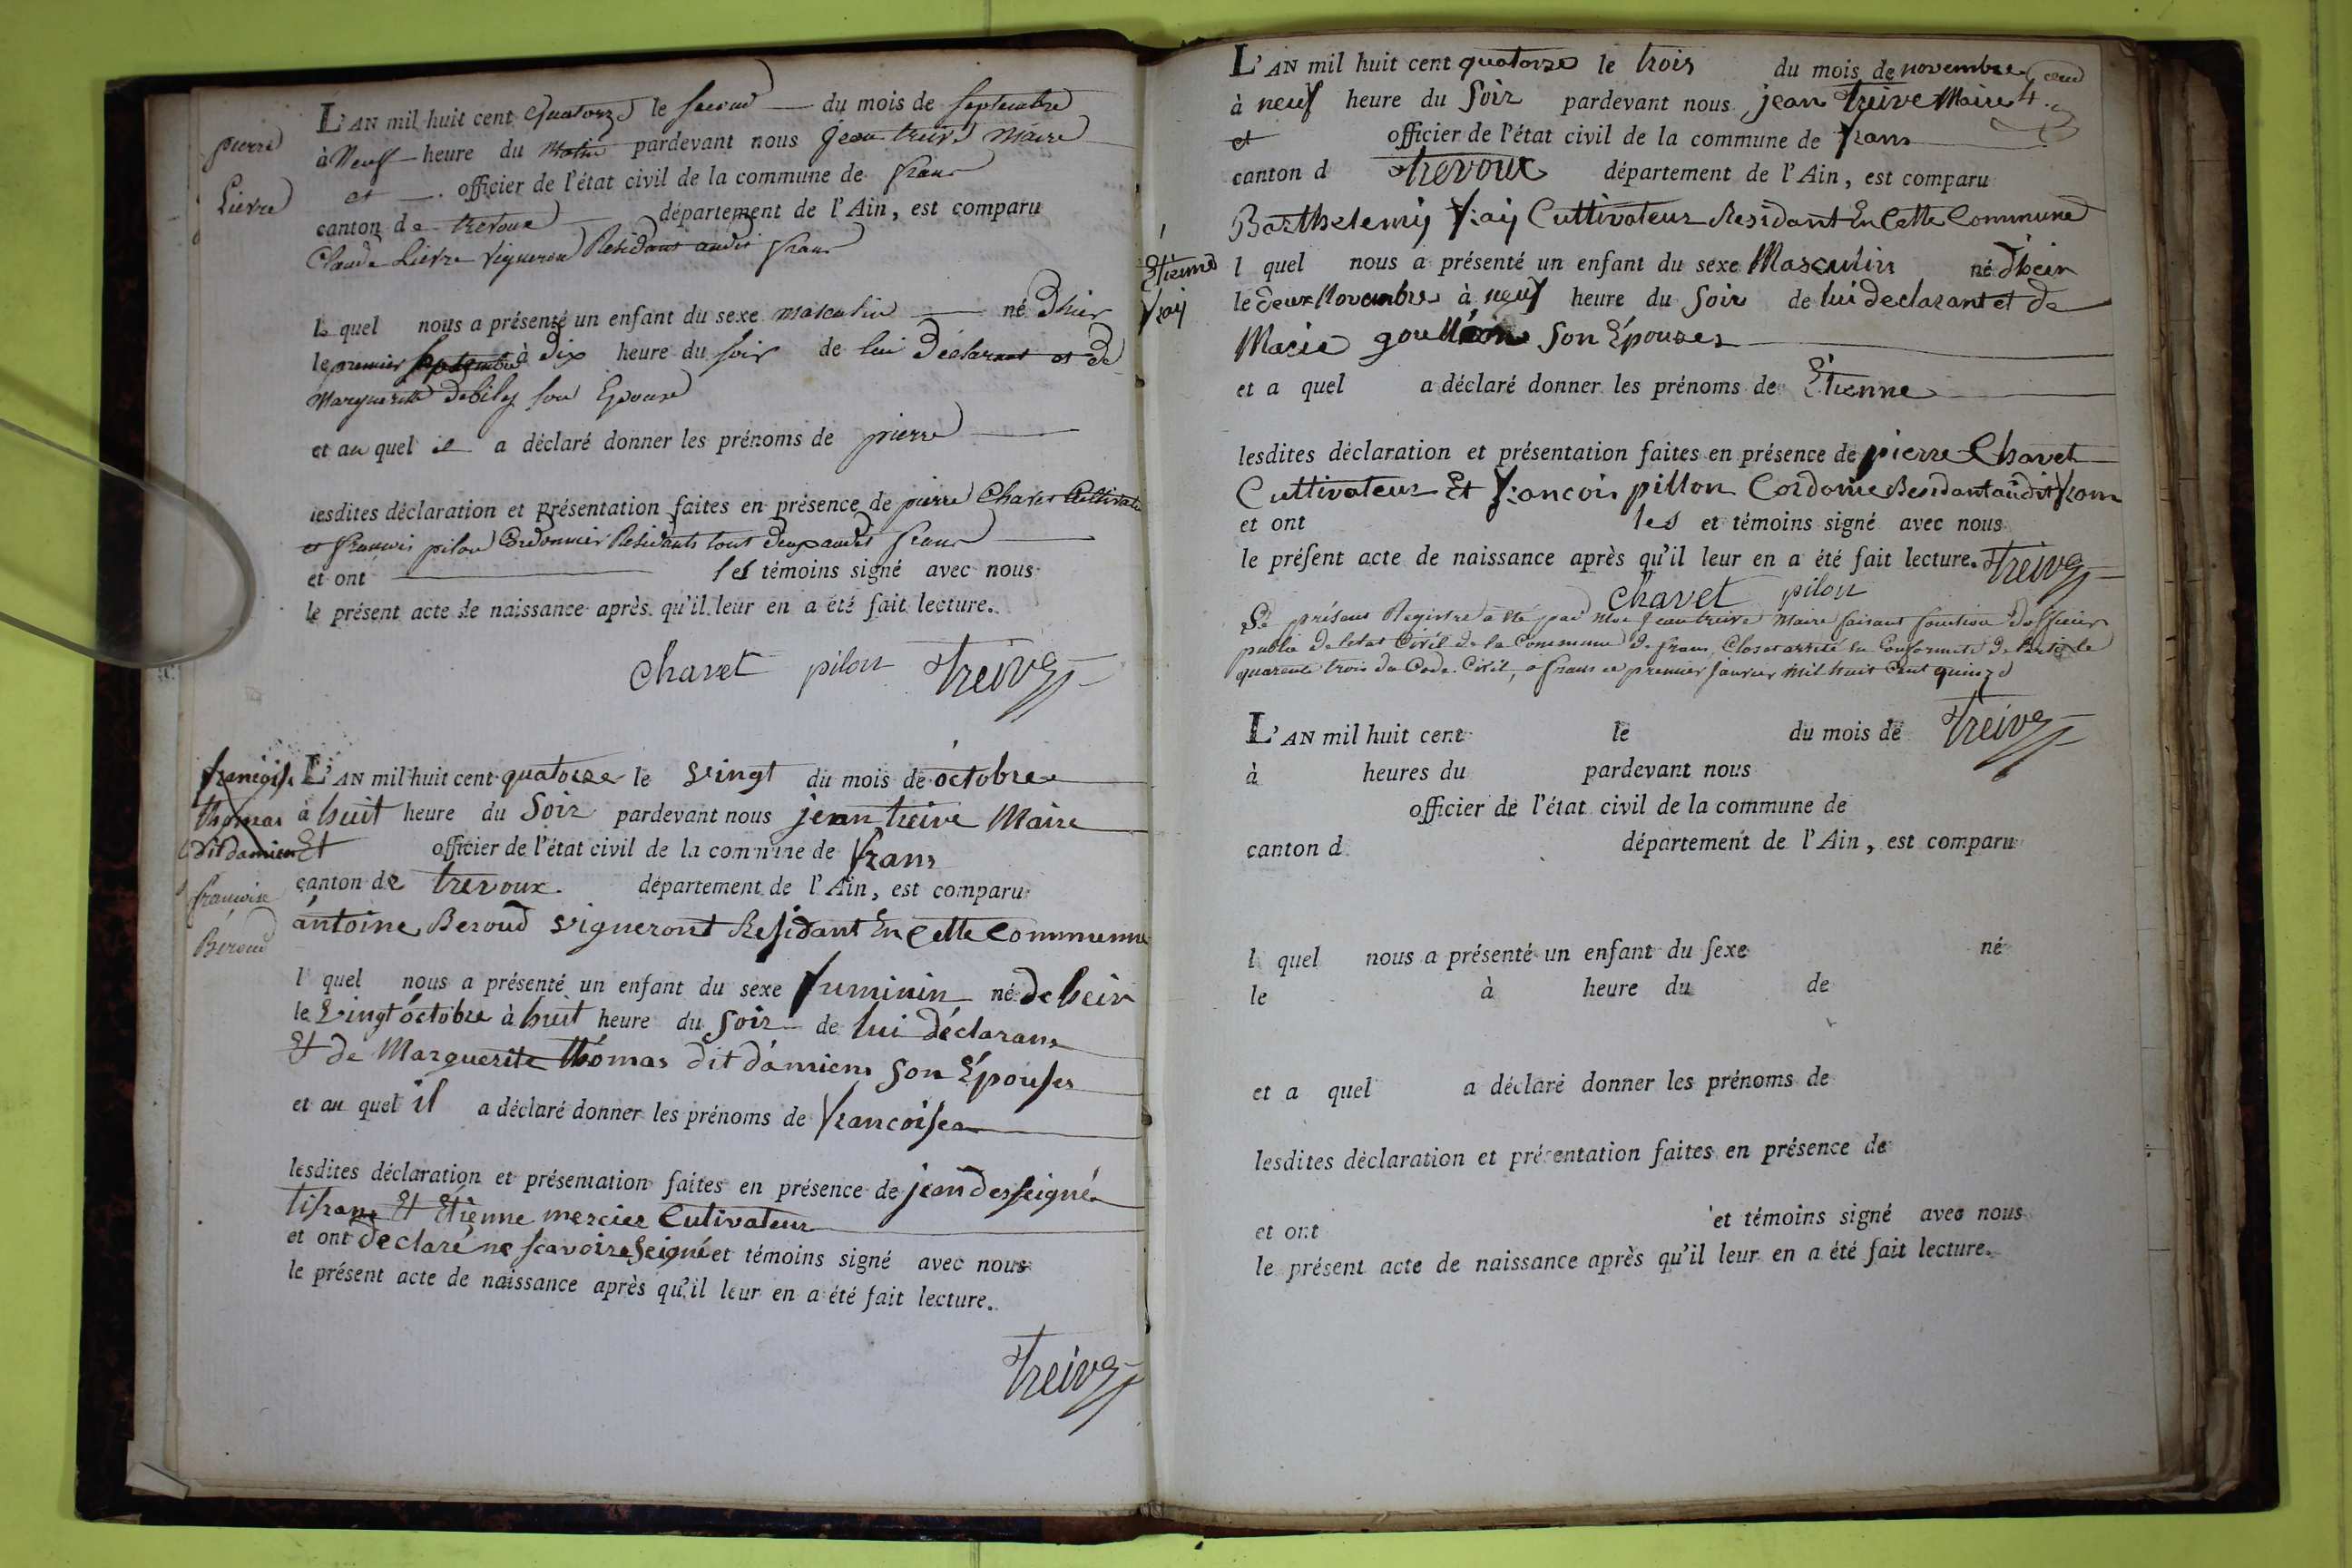 pierre
Lievre
L'AN mil huit cent quatorze le second du mois de septembre
à Neuf heure du matin pardevant nous jean treive maire
et officier de l'état civil de la commune de frans
canton de trevoux département de l'Ain, est comparu
Claude Lievre vigneron Residant audit frans
le quel nous a présenté un enfant du sexe masculin né Dhier
le premier septembre à dix heure du soir de lui déclarant et de
Marguerite debiley son Epouse
et au quel il a déclaré donner les prénoms de pierre
lesdites déclaration et présentation faites en présence de pierre Chavet Cultivateur
et francois pilon Cordonnier Residants tout deux audit frans
et ont les témoins signé avec nous
le présent acte de naissance après qu'il leur en a été fait lecture.
Chavet pilon Treive
françoise
thomas
dit damiens
francoise
Beroud
L'AN mil huit cent quatorze le vingt du mois de octobre
à huit heure du Soir pardevant nous jean treive Maire
Et officier de l'état civil de la commune de frans
canton de trevoux département de l'Ain, est comparu
antoine Beroud vigneront Residant En Cette Commune
l quel nous a présenté un enfant du sexe fuminin né de heir
le vingt octobre à huit heure du Soir de lui déclarans
Et de Marguerite thomas dit damiens Son Epouses
et au quel il a déclaré donner les prénoms de francoisea
lesdites déclaration et présentation faites en présence de jean desseigné
tisrans Et Etienne mercier Cutivateur
et ont declaré ne scavoire Seigné et témoins signé avec nous
le présent acte de naissance après qu'il leur en a été fait lecture.
Treive
Etienne
fray
L'AN mil huit cent quatorze le trois du mois de novembre
à neuf heure du Soir pardevant nous jean treive Maire
et officier de l'état civil de la commune de frans
canton d trevoux département de l'Ain, est comparu
Barthelemy fray Cultivateur Residant En Cette Commune
l quel nous a présenté un enfant du sexe Masculin né d'heir
le deux Novembre à neuf heure du Soir de lui declarant et de
Marie Son Epouses
et a quel a déclaré donner les prénoms de Etienne
lesdites déclaration et présentation faites en présence de pierre Chavet
Cultivateur Et francois pillon Cordonie Residant audit frans
et ont les et témoins signé avec nous
le présent acte de naissance après qu'il leur en a été fait lecture. Treive
Chavet pilon
Le présent Registre a été par moi Jean treive Maire faisant fonction d'officier
public de l'etat Civil de la Commune de frans, Clos et arrêté en Conformité de l'article
quarante trois du Code Civil, a frans ce premier janvier mil huit Cent quinze
Treive
L'AN mil huit cent le du mois de
à heures du pardevant nous
officier de l'état civil de la commune de
canton d département de l'Ain, est comparu
l quel nous a présenté un enfant du sexe né
le à heure du de
et a quel a déclaré donner les prénoms de
lesdites déclaration et présentation faites en présence de
et ont et témoins signé avec nous
le présent acte de naissance après qu'il leur en a été fait lecture.